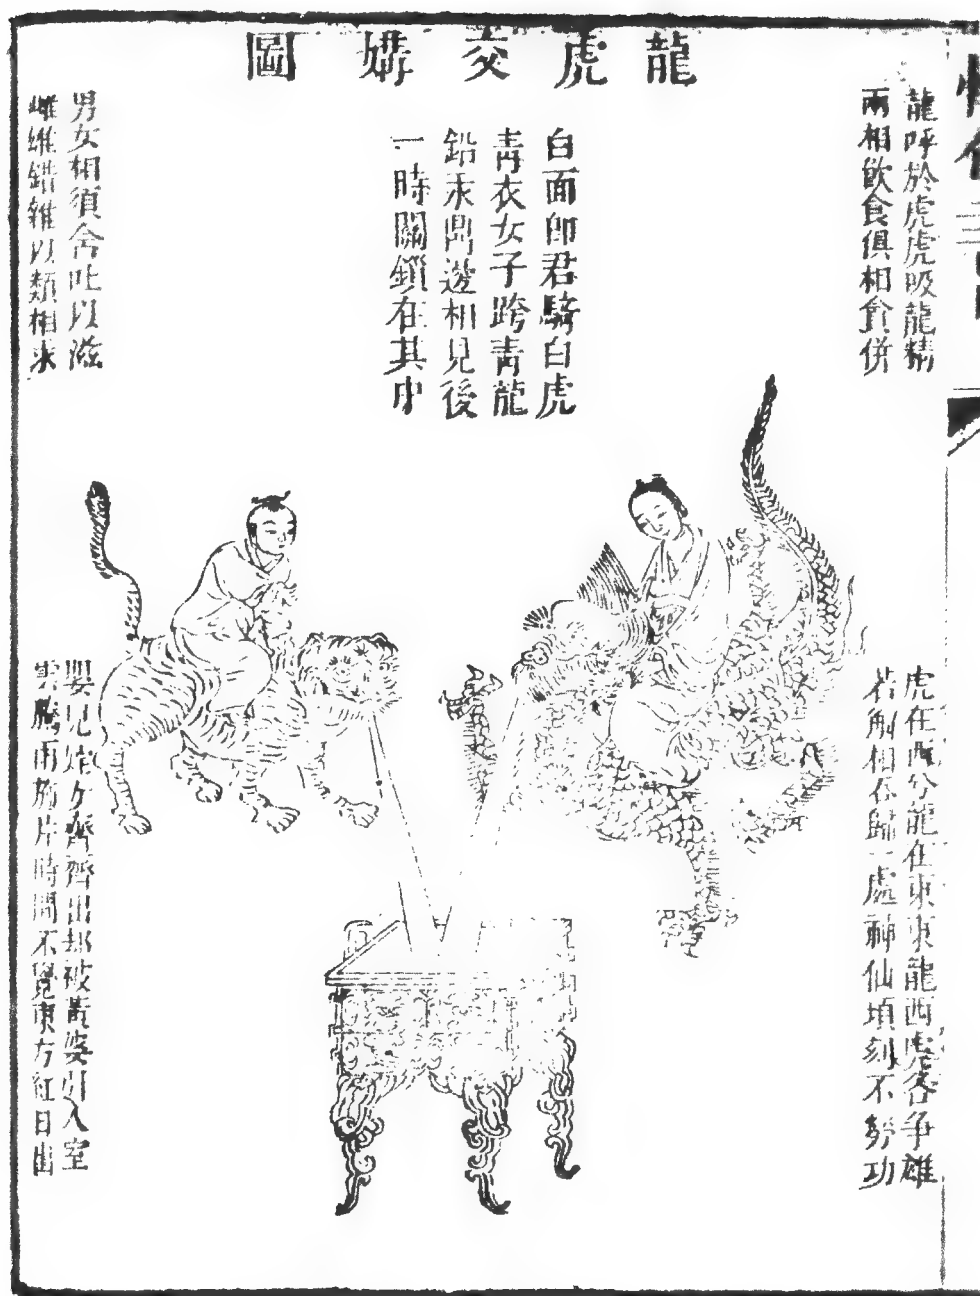 龍虎交媾圖
龍呼於虎虎吸龍精
兩相飲食俱相貪併
白面郎君騎白虎
青衣女子跨青龍
鉛汞鼎邊相見後
一時關鎖在其中
男女相須含吐以滋
雌雄錯雜以類相求
虎在西兮龍在東東龍西虎各爭雄
若解相吞歸一處神仙頃刻不勞功
嬰兒姹女齊齊出却被黃婆引入室
雲騰雨施片時間不覺東方紅日出